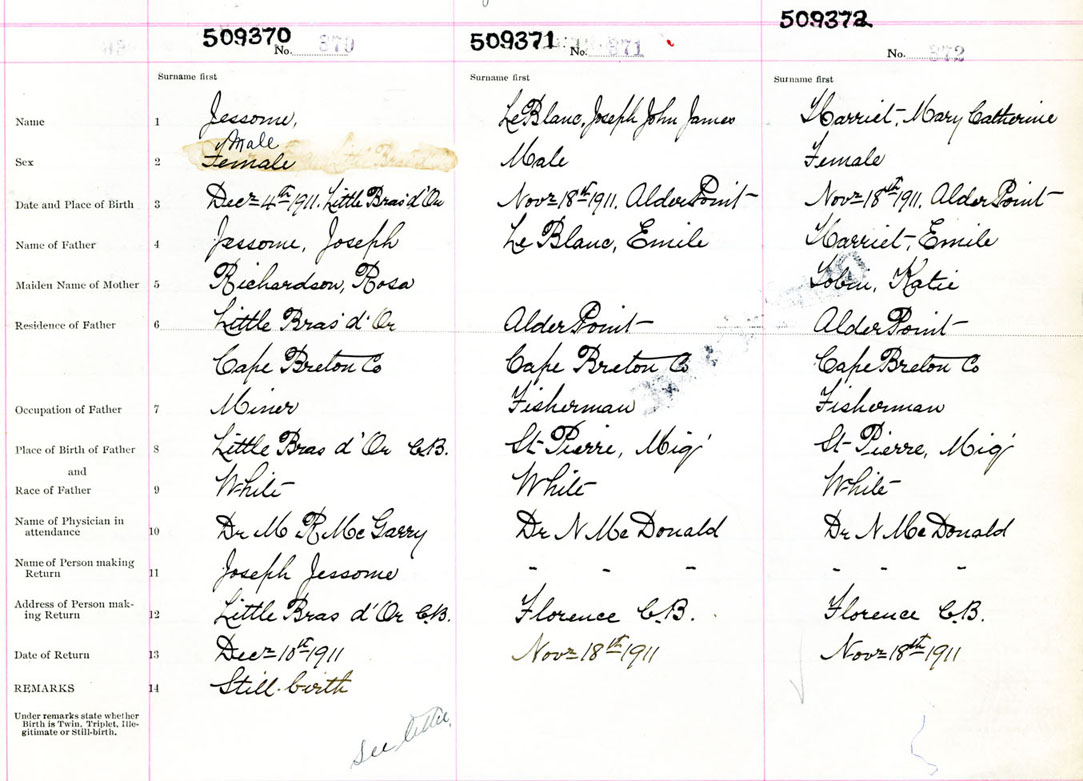 509370 509371 509372
No. 370 No. 371 No. 372
Surname first Surname first Surname first
Name 1 Jessome, LeBlanc, Joseph John James Harriet, Mary Catherine
Male
Sex 2 Female Male Female
Date and Place of Birth 3 Decr 4th 1911. Little Bras d'Or Novr 18th 1911. Alder Point Novr 18th 1911. Alder Point
Name of Father 4 Jessome, Joseph Le Blanc, Emile Harriet, Emile
Maiden Name of Mother 5 Richardson, Rosa Tobin, Katie
Residence of Father 6 Little Bras d'Or Alder Point Alder Point
Cape Breton Co Cape Breton Co Cape Breton Co
Occupation of Father 7 Miner Fisherman Fisherman
Place of Birth of Father 8 Little Bras d'Or C.B. St Pierre, Miq' St Pierre, Miq'
and
Race of Father 9 White White White
Name of Physician in
attendance 10 Dr M R McGarry Dr N McDonald Dr N McDonald
Name of Person making
Return 11 Joseph Jessome - - - - - -
Address of Person mak-
ing Return 12 Little Bras d'Or C.B. Florence C.B. Florence C.B.
Date of Return 13 Decr 10th 1911 Novr 18th 1911 Novr 18th 1911
REMARKS 14 Still-birth
Under remarks state whether
Birth is Twin, Triplet, Ille-
gitimate or Still-birth.
see letter.